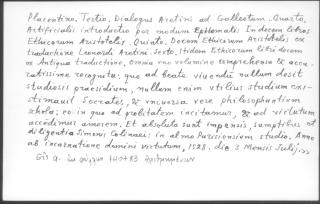 Placentino. Tertio, Dialogus Aretini ad Galleotum. Quarto,
Artificialis introductio per modum Epitomatis In decem libros
Ethicorum Aristotelis. Quinto. Decem Ethicorum Aristotelis ex
traductione Leonardi Aretini. Sexto, itidem Ethicorum libri decem
ex Antiqua traductione, omnia uno volumine comprehensa & accu-
ratissime recognita: quo ad beate vivendum nullum desit
studiosis praesidium, nullum enim utilius studium exi-
stimavit Socrates, & universa vere philosophantium
schola; eo in quo ad probitatem incitamur, & ad virtutum
accedimur amorem. Et absoluta sunt impensis, sumptibus et
diligentia Simonis Colinaei: in almo Parisiensium studio. Anno
ab incarnatione domini virtutum, 1528. die 3 Mensis Julij.>>